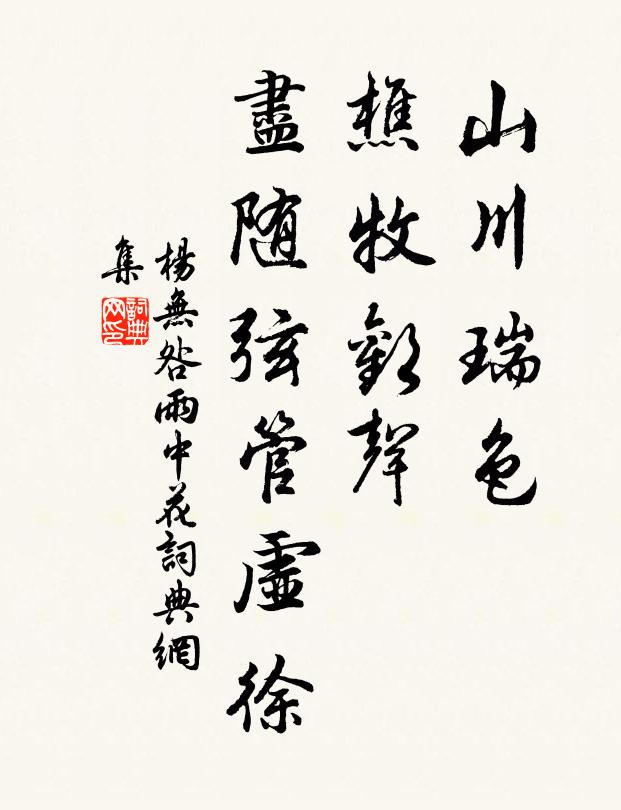 山川瑞色
樵牧歡聲
盡随弦管虛徐
楊無咎雨中花詞典網
集
詞典网印